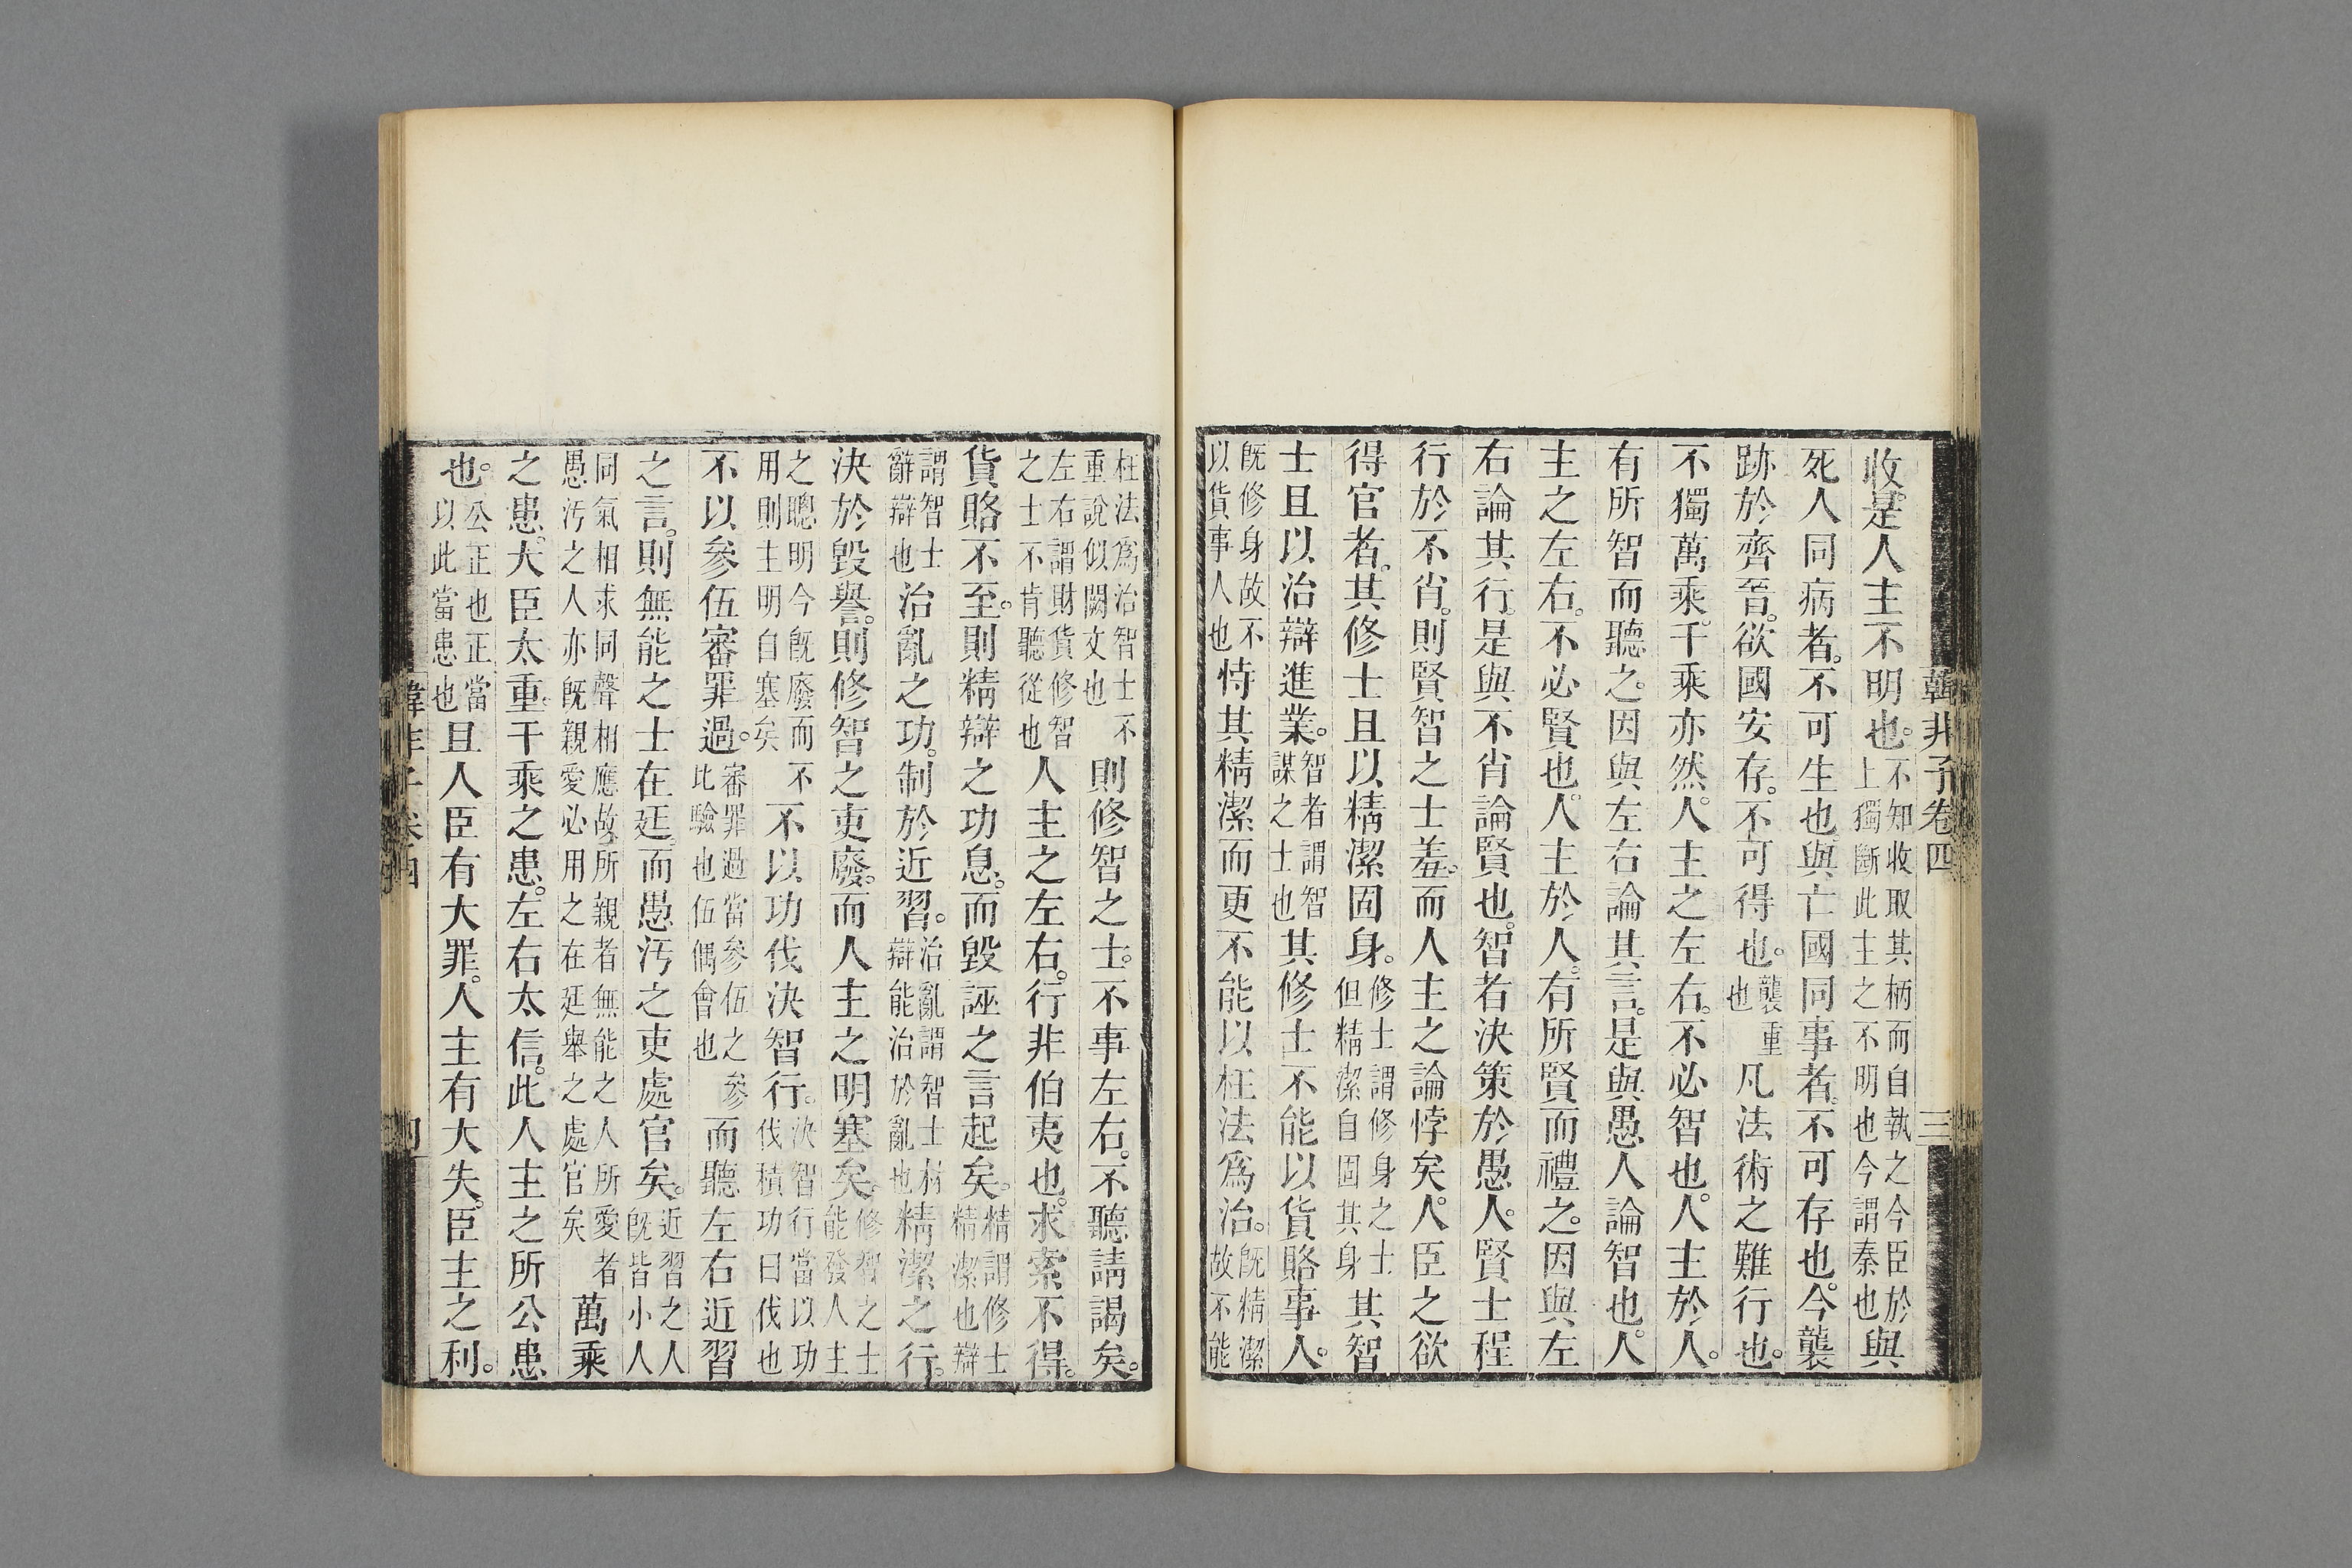 韓非子卷四 三
收是人主不明也。不知收取其柄而自執之今臣於上獨斷此主之不明也今謂秦也與
死人同病者。不可生也。與亡國同事者。不可存也。今襲
跡於齊晉。欲國安存。不可得也。襲重也凡法術之難行也。
不獨萬乘。千乘亦然。人主之左右。不必智也。人主於人。
有所智而聽之。因與左右論其言。是與愚人論智也。人
主之左右。不必賢也。人主於人。有所賢而禮之。因與左
右論其行。是與不肖論賢也。智者決策於愚人。賢士程
行於不肖。則賢智之士羞。而人主之論悖矣。人臣之欲
得官者。其修士且以精潔固身。修士謂修身之士但精潔自固其身其智
士且以治辯進業。智者謂智謀之士也其修士不能以貨賂事人。
既修身故不以貨事人也恃其精潔而更不能以枉法爲治。既精潔故不能
枉法爲治智士不重說似闕文也則修智之士。不事左右。不聽請謁矣。
左右謂財貨修智之士不肯聽從也人主之左右。行非伯夷也。求索不得。
貨賂不至。則精辯之功息。而毀誣之言起矣。精謂修士精潔也辯
謂智士辭辯也治亂之功。制於近習。治亂謂智士材辯能治於亂也精潔之行。
決於毀譽。則修智之吏廢。而人主之明塞矣。修智之士能發人主
之聰明今既廢而不用則主明自塞矣不以功伐決智行。決智行當以功伐積功曰伐也
不以參伍審罪過。審罪過當參伍之參此驗也伍偶會也而聽左右近習
之言。則無能之士在廷。而愚汚之吏處官矣。近習之人既皆小人
同氣相求同聲相應故所親者無能之人所愛者愚汚之人亦既親愛必用之在廷舉之處官矣萬乘
之患。大臣太重。千乘之患。左右太信。此人主之所公患
也。公正也正當以此當患也且人臣有大罪。人主有大失。臣主之利。
韓非子卷四 四